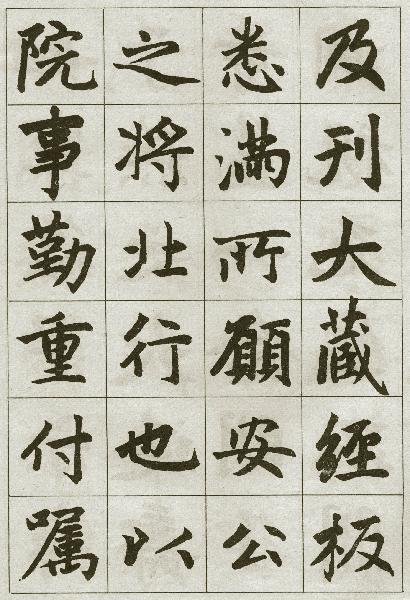 及刊大藏經板
悉滿所願安公
之将北行也以
院事勤重付嘱